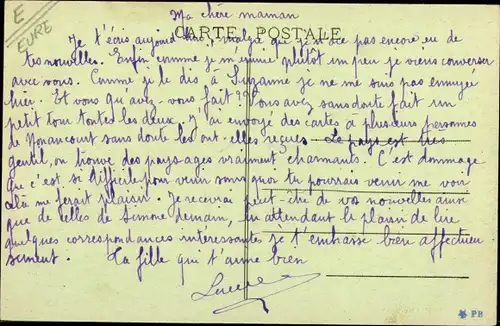 E
EURE
Ma chère maman
CARTE POSTALE
Je t'écris aujourd'hui, malgré que je n'ai pas encore eu de
tes nouvelles. Enfin comme je m'ennuie plutôt un peu je viens converser
avec vous. Comme je le dis à Suzanne je ne me suis pas ennuyée
hier. Et vous qu'avez-vous fait ?? Vous avez sans doute fait un
petit tour toutes les deux. J'ai envoyé des cartes à plusieurs personnes
de Nonancourt sans doute les ont-elles reçues. Le pays est très
gentil, on trouve des paysages vraiment charmants. C'est dommage
que c'est si difficile pour venir sans quoi tu pourrais venir me voir
cela me ferait plaisir. Je recevrai peut-être de vos nouvelles ainsi
que de celles de Simone demain, en attendant le plaisir de lire
quelques correspondances intéressantes je t'embrasse bien affectueu
sement. Ta fille qui t'aime bien
PB